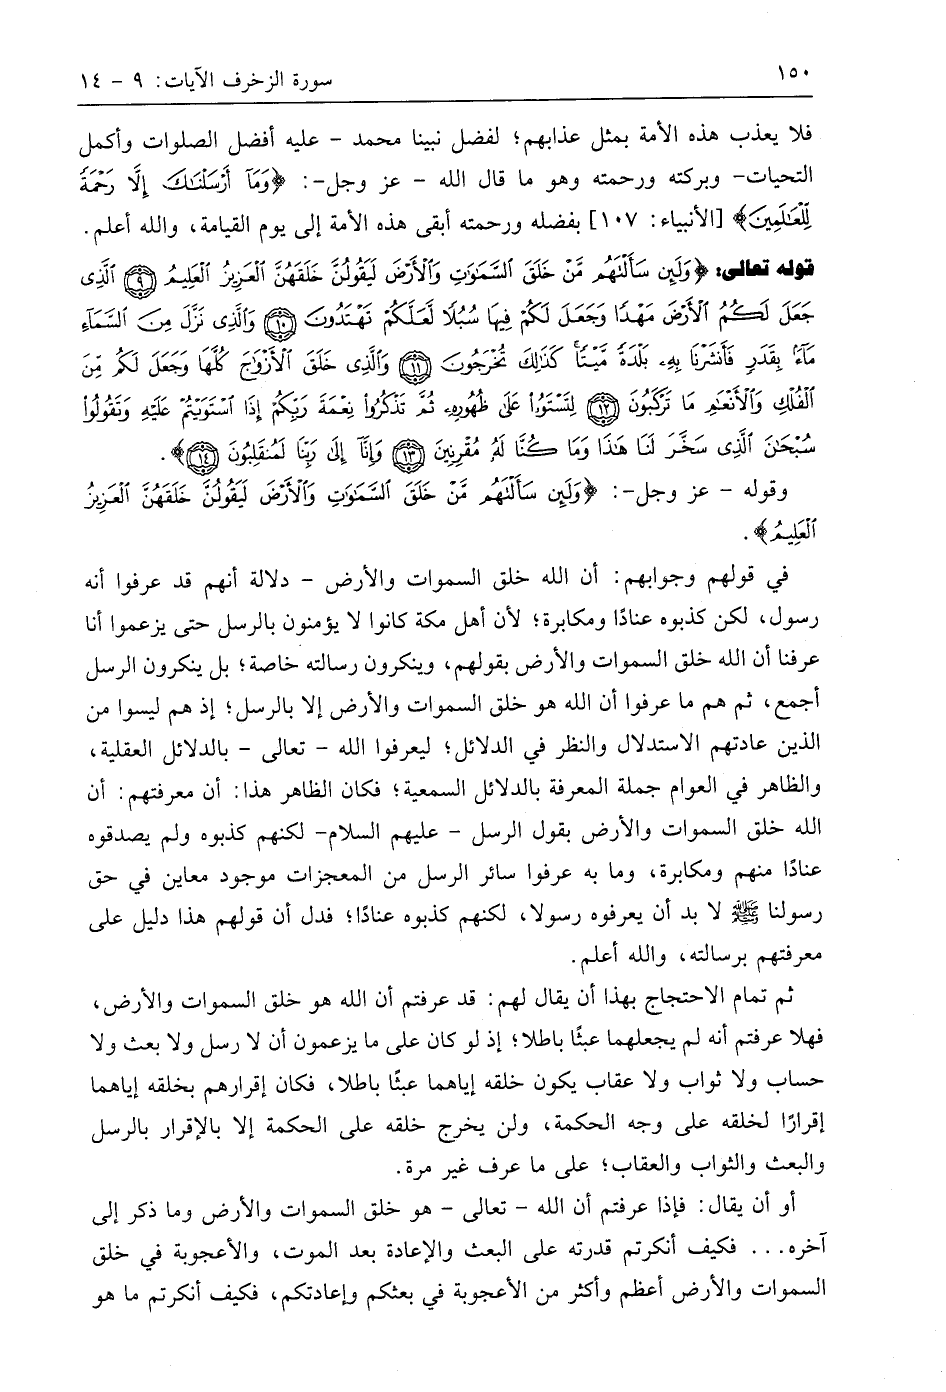 ١٥٠
سورة الزخرف الآيات: ٩ - ١٤
فلا يعذب هذه الأمة بمثل عذابهم؛ لفضل نبينا محمد - عليه أفضل الصلوات وأكمل
التحيات- وبركته ورحمته وهو ما قال الله - عز وجل-: ﴿وَمَآ أَرْسَلْنَٰكَ إِلَّا رَحْمَةً
لِّلْعَٰلَمِينَ﴾ [الأنبياء: ١٠٧] بفضله ورحمته أبقى هذه الأمة إلى يوم القيامة، والله أعلم.
قوله تعالى: ﴿وَلَئِن سَأَلْتَهُم مَّنْ خَلَقَ ٱلسَّمَٰوَٰتِ وَٱلْأَرْضَ لَيَقُولُنَّ خَلَقَهُنَّ ٱلْعَزِيزُ ٱلْعَلِيمُ ۝٩ ٱلَّذِى
جَعَلَ لَكُمُ ٱلْأَرْضَ مَهْدًا وَجَعَلَ لَكُمْ فِيهَا سُبُلًا لَّعَلَّكُمْ تَهْتَدُونَ ۝١٠ وَٱلَّذِى نَزَّلَ مِنَ ٱلسَّمَآءِ
مَآءًۢ بِقَدَرٍ فَأَنشَرْنَا بِهِۦ بَلْدَةً مَّيْتًا ۚ كَذَٰلِكَ تُخْرَجُونَ ۝١١ وَٱلَّذِى خَلَقَ ٱلْأَزْوَٰجَ كُلَّهَا وَجَعَلَ لَكُم مِّنَ
ٱلْفُلْكِ وَٱلْأَنْعَٰمِ مَا تَرْكَبُونَ ۝١٢ لِتَسْتَوُۥا۟ عَلَىٰ ظُهُورِهِۦ ثُمَّ تَذْكُرُوا۟ نِعْمَةَ رَبِّكُمْ إِذَا ٱسْتَوَيْتُمْ عَلَيْهِ وَتَقُولُوا۟
سُبْحَٰنَ ٱلَّذِى سَخَّرَ لَنَا هَٰذَا وَمَا كُنَّا لَهُۥ مُقْرِنِينَ ۝١٣ وَإِنَّآ إِلَىٰ رَبِّنَا لَمُنقَلِبُونَ ۝١٤﴾.
وقوله - عز وجل-: ﴿وَلَئِن سَأَلْتَهُم مَّنْ خَلَقَ ٱلسَّمَٰوَٰتِ وَٱلْأَرْضَ لَيَقُولُنَّ خَلَقَهُنَّ ٱلْعَزِيزُ
ٱلْعَلِيمُ﴾.
في قولهم وجوابهم: أن الله خلق السموات والأرض - دلالة أنهم قد عرفوا أنه
رسول، لكن كذبوه عنادًا ومكابرة؛ لأن أهل مكة كانوا لا يؤمنون بالرسل حتى يزعموا أنا
عرفنا أن الله خلق السموات والأرض بقولهم، وينكرون رسالته خاصة؛ بل ينكرون الرسل
أجمع، ثم هم ما عرفوا أن الله هو خلق السموات والأرض إلا بالرسل؛ إذ هم ليسوا من
الذين عادتهم الاستدلال والنظر في الدلائل؛ ليعرفوا الله - تعالى - بالدلائل العقلية،
والظاهر في العوام جملة المعرفة بالدلائل السمعية؛ فكان الظاهر هذا: أن معرفتهم: أن
الله خلق السموات والأرض بقول الرسل - عليهم السلام- لكنهم كذبوه ولم يصدقوه
عنادًا منهم ومكابرة، وما به عرفوا سائر الرسل من المعجزات موجود معاين في حق
رسولنا ﷺ لا بد أن يعرفوه رسولا، لكنهم كذبوه عنادًا؛ فدل أن قولهم هذا دليل على
معرفتهم برسالته، والله أعلم.
ثم تمام الاحتجاج بهذا أن يقال لهم: قد عرفتم أن الله هو خلق السموات والأرض،
فهلا عرفتم أنه لم يجعلهما عبثًا باطلا؛ إذ لو كان على ما يزعمون أن لا رسل ولا بعث ولا
حساب ولا ثواب ولا عقاب يكون خلقه إياهما عبثًا باطلا، فكان إقرارهم بخلقه إياهما
إقرارًا لخلقه على وجه الحكمة، ولن يخرج خلقه على الحكمة إلا بالإقرار بالرسل
والبعث والثواب والعقاب؛ على ما عرف غير مرة.
أو أن يقال: فإذا عرفتم أن الله - تعالى - هو خلق السموات والأرض وما ذكر إلى
آخره... فكيف أنكرتم قدرته على البعث والإعادة بعد الموت، والأعجوبة في خلق
السموات والأرض أعظم وأكثر من الأعجوبة في بعثكم وإعادتكم، فكيف أنكرتم ما هو